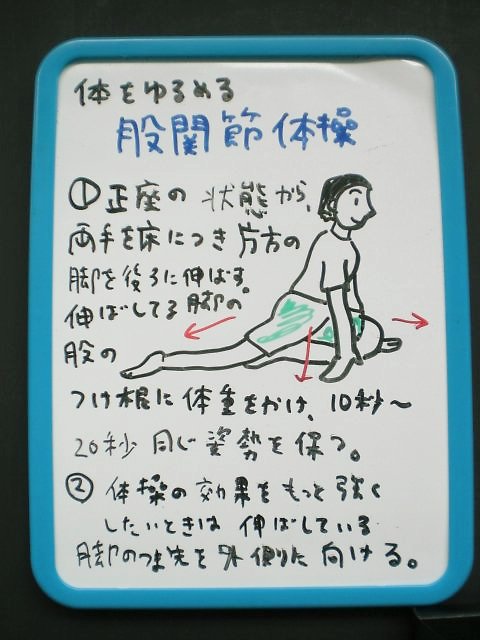 体をゆるめる
股関節体操
①正座の状態から、
両手を床につき片方の
脚を後ろに伸ばす。
伸ばしてる脚の
股の
つけ根に体重をかけ、10秒～
20秒同じ姿勢を保つ。
②体操の効果をもっと強く
したいときは伸ばしている
脚のつま先を外側に向ける。